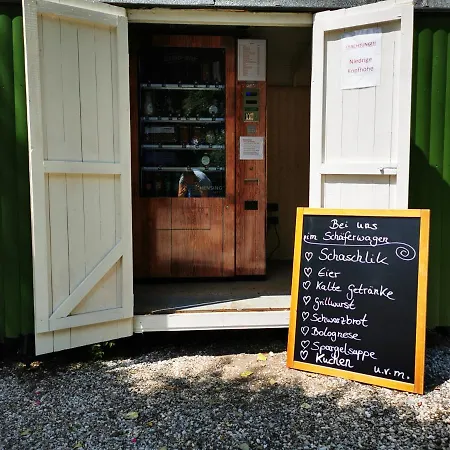 Niedrige
Kopfhöhe
Bei uns
im Schäferwagen
Schaschlik
Eier
Kalte Getränke
Grillwurst
Schwarzbrot
Bolognese
Spargelsuppe
Kuchen
u.v.m.